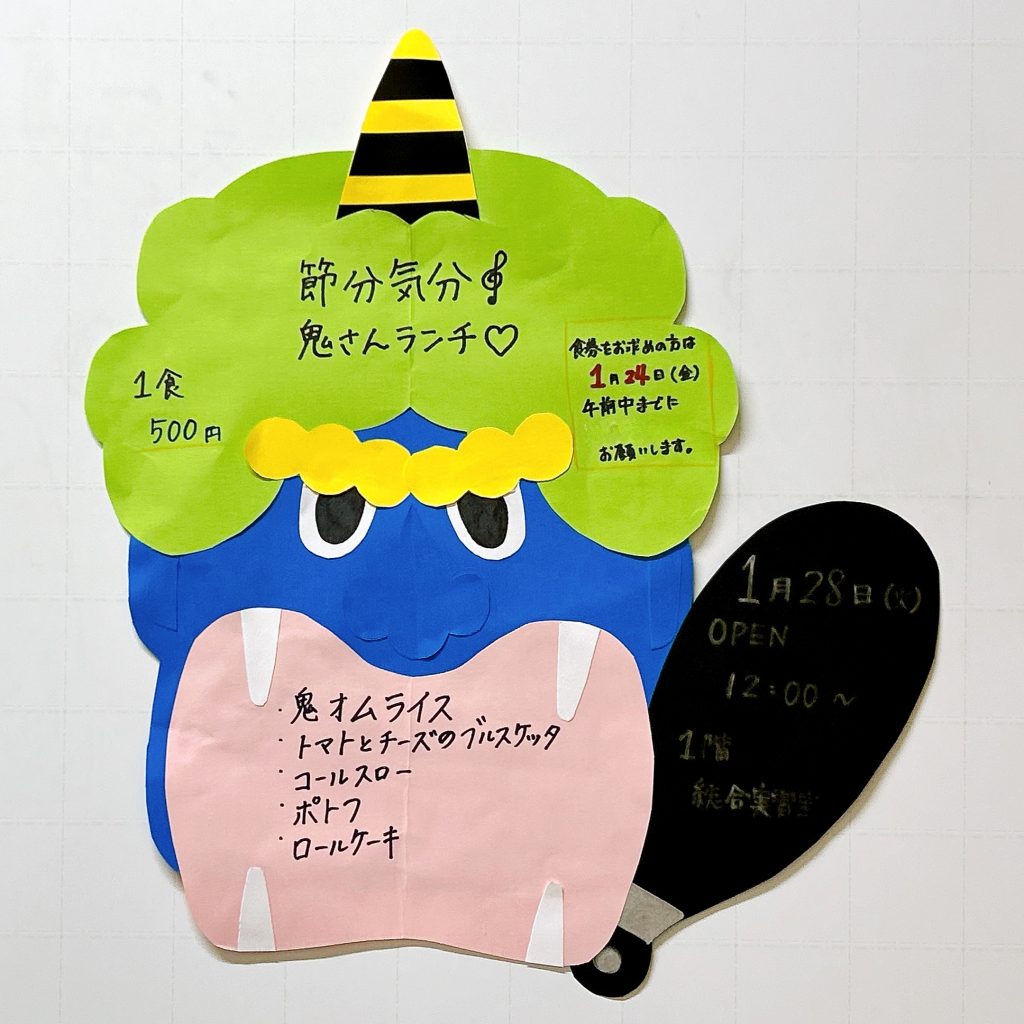 節分気分
鬼さんランチ♡
1食
500円
食券をお求めの方は
1月24日(金)
午前中までに
お願いします。
・鬼オムライス
・トマトとチーズのブルスケッタ
・コールスロー
・ポトフ
・ロールケーキ
1月28日(火)
OPEN
12:00~
1階
総合実習室